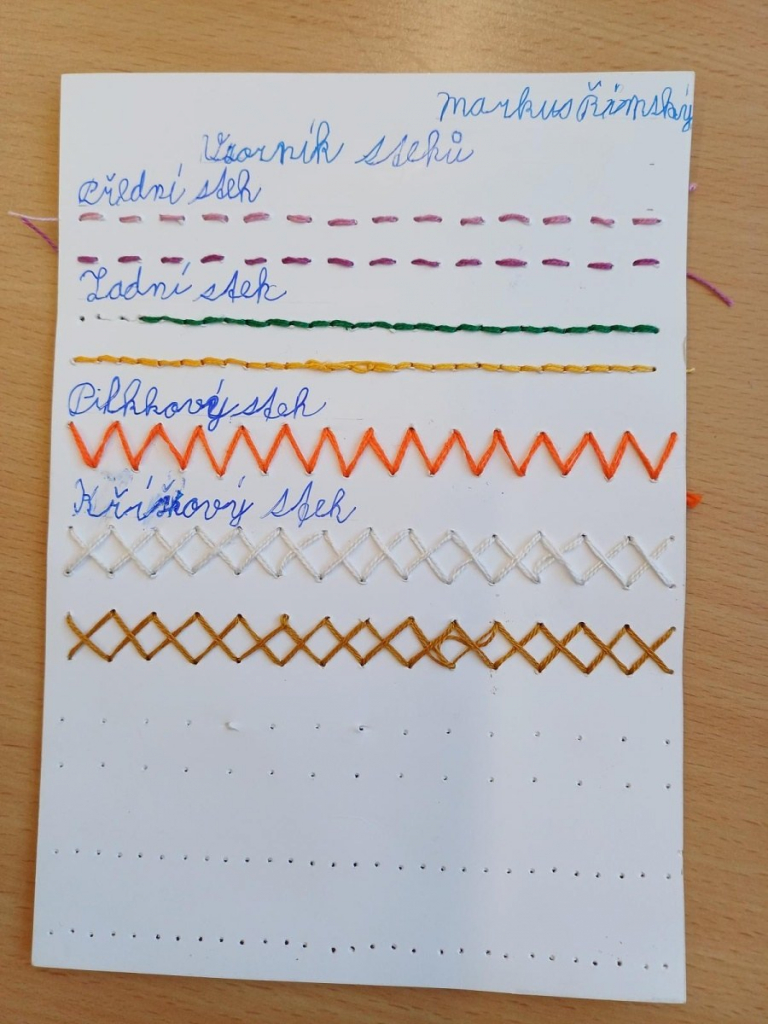 Markus Římský
Vzorník stehů
Přední steh
Zadní stek
Pilkkový steh
Křížkový steh